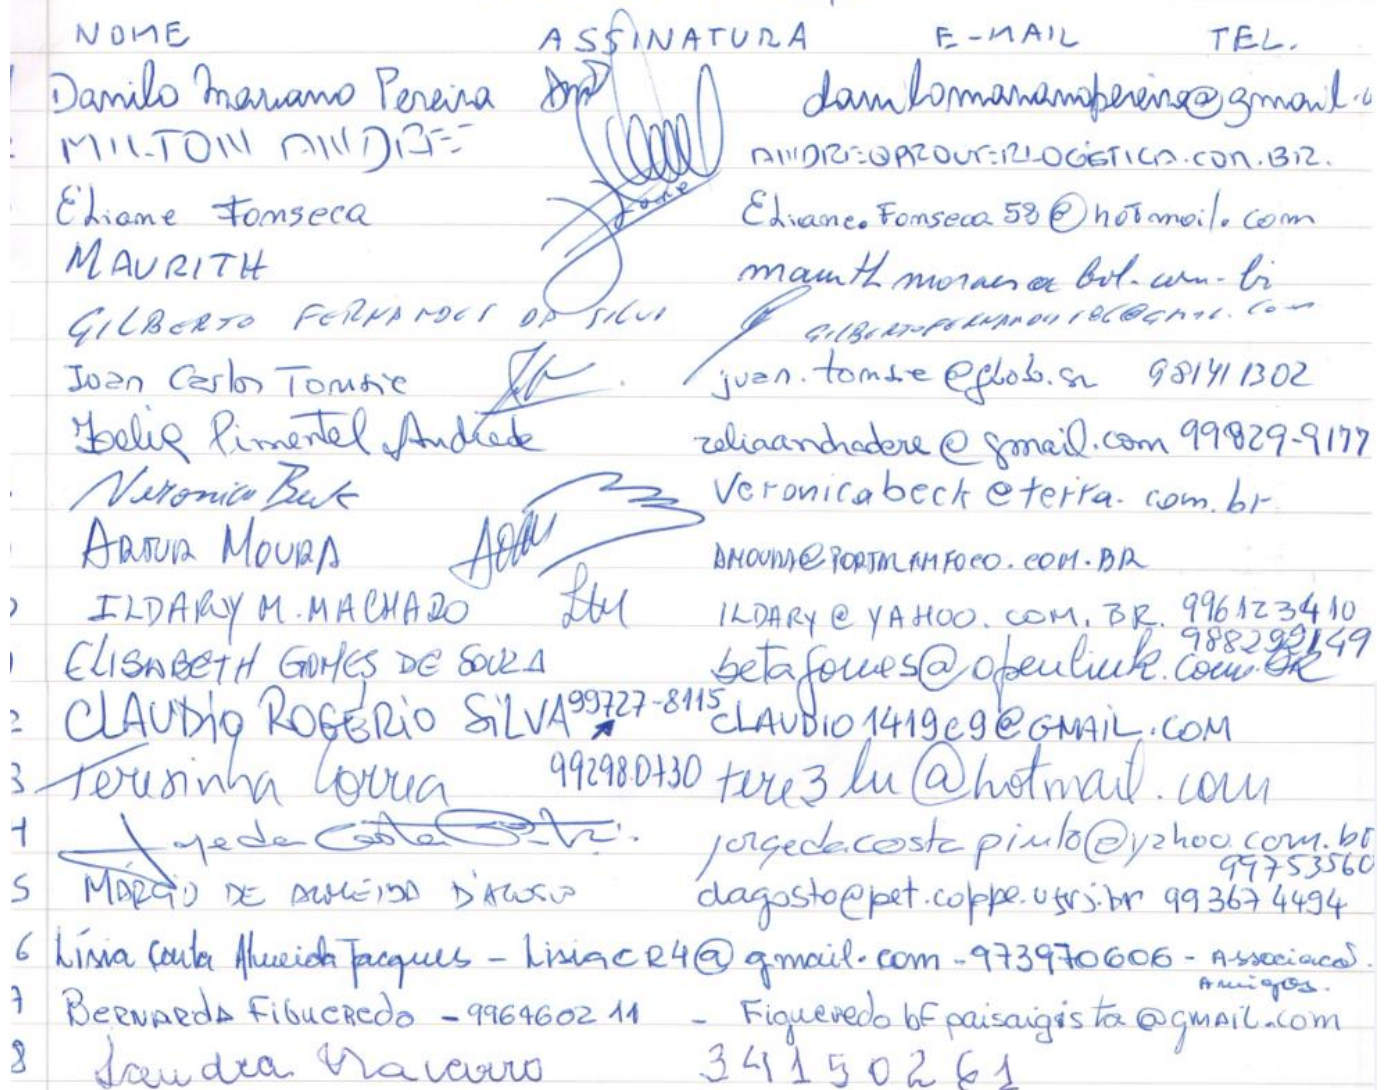 NOME ASSINATURA E-MAIL TEL.
Danilo Mariano Pereira danilomarianopereira@gmail.c
MILTON ANDRÉ ANDRE@PROVERLOGISTICA.COM.BR.
Eliane Fonseca Eliane.Fonseca58@hotmail.com
MAURITH maurithmoraes@bol.com.br
GILBERTO FERNANDES DA SILVA
Juan Carlos Tomsic juan.tomsic@globo.com 981411302
Zelia Pimentel Andrade zeliaandradere@gmail.com 99829-9177
Veronica Beck Veronicabeck@terra.com.br
ARTUR MOURA AMOURA@PORTALAMFOCO.COM.BR
ILDARY M. MACHADO ILDARY@YAHOO.COM.BR. 996123410
988299149
ELISABETH GOMES DE SOUZA betagomes@openlink.com.BR
CLAUDIO ROGÉRIO SILVA 99727-8115 CLAUDIO1419c9@GMAIL.COM
Teresinha Correa 992980730 tere3lu@hotmail.com
jorgedacostapinto@yahoo.com.br
99753560
5 MARCIO DE ALMEIDA D'AGOSTO dagosto@pet.coppe.ufrj.br 993674494
6 Lísia Almeida Jacques - Lisiacr4@gmail.com - 973970606 - Associacao
Amigos.
7 BERNARDA FIGUEREDO - 996460211 - Figueredobfpaisaigista@gmail.com
8 Sandra Navarro 34150261